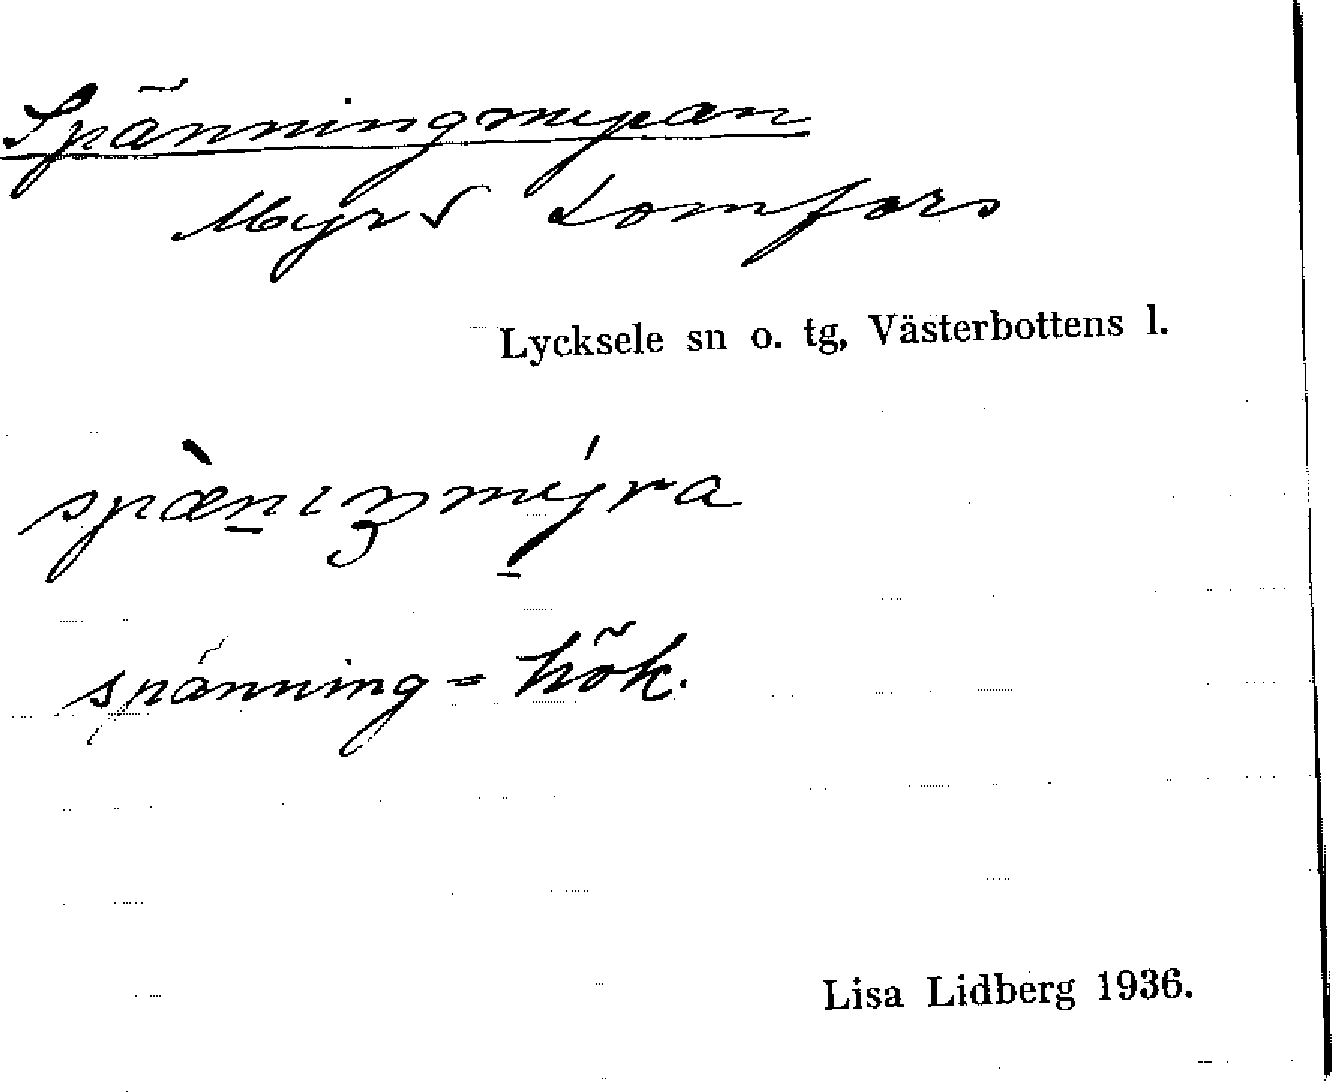 Spänningmyran
Myr S Lomfors
Lycksele sn o. tg, Västerbottens l.
spänning = hök.
Lisa Lidberg 1936.